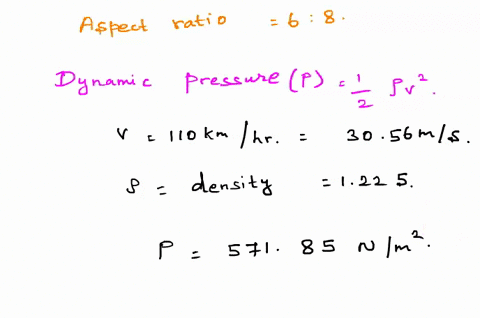 Aspect ratio = 6 : 8.
Dynamic pressure (P) = 1/2 ρv².
v = 110 km/hr. = 30.56 m/s.
ρ = density = 1.225.
P = 571.85 N/m².